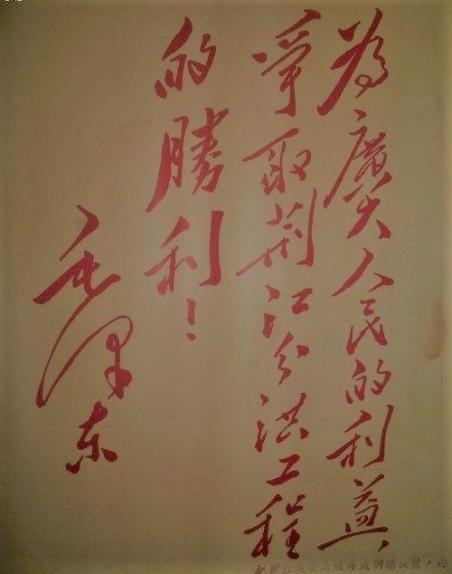 為廣大人民的利益
爭取荊江分洪工程
的勝利！
毛澤东